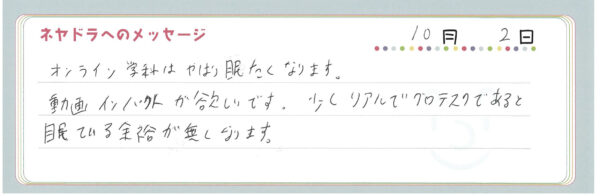 ネヤドラへのメッセージ 10月 2日
オンライン学科はやはり眠たくなります。
動画インパクトが欲しいです。少しリアルでグロテスクであると
眠ている余裕が無くなります。